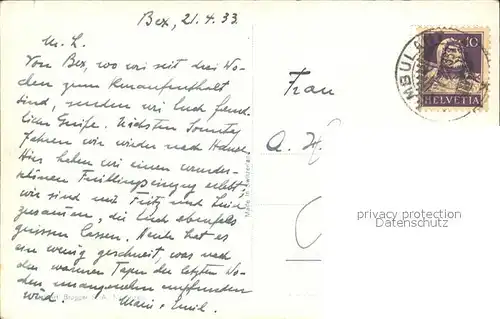 Bex, 21.4.33
M. L.
Von Bex, wo wir seit drei Wo-
chen zum Kuraufenthalt
sind, senden wir Euch freund-
liche Grüße. Nächsten Sonntag
fahren wir wieder nach Hause.
Hier haben wir einen wunder-
schönen Frühlingseinzug erlebt
wir sind mit Fritz und
zusammen, die Euch ebenfalls
grüssen lassen. Heute hat es
ein wenig geschneit, was nach
den warmen Tagen der letzten Wo-
chen unangenehm empfunden
wird. Marie & Emil.
Frau
A. H
AMBULANT
10
HELVETIA
Made in Switzerland
privacy protection
Datenschutz
Brügger